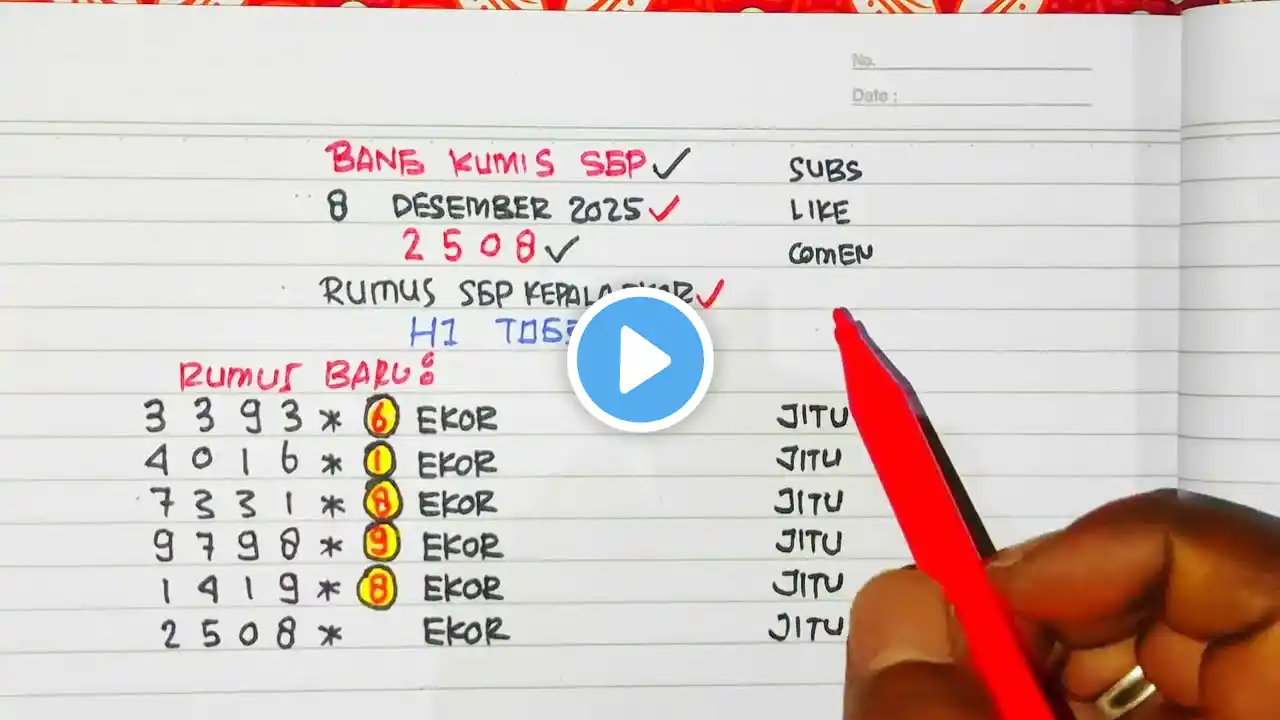 No.
Date :
BANG KUMIS SGP ✓ SUBS
8 DESEMBER 2025 ✓ LIKE
2508 ✓ COMEN
RUMUS SGP KEPALA ✓
HI
RUMUS BARU:
3 3 9 3 * 6 EKOR JITU
4 0 1 6 * 1 EKOR JITU
7 3 3 1 * 8 EKOR JITU
9 7 9 8 * 9 EKOR JITU
1 4 1 9 * 8 EKOR JITU
2 5 0 8 * EKOR JITU